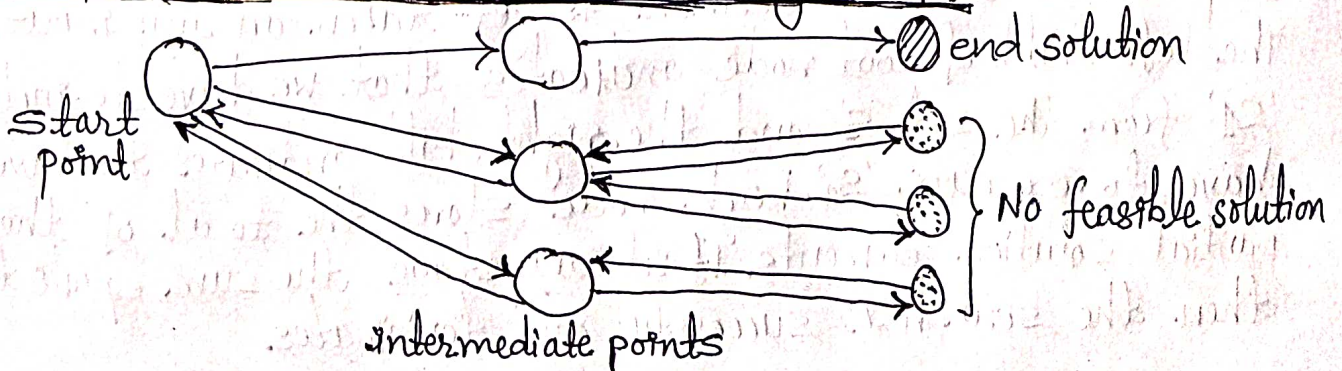 end solution
start
point
No feasible solution
intermediate points